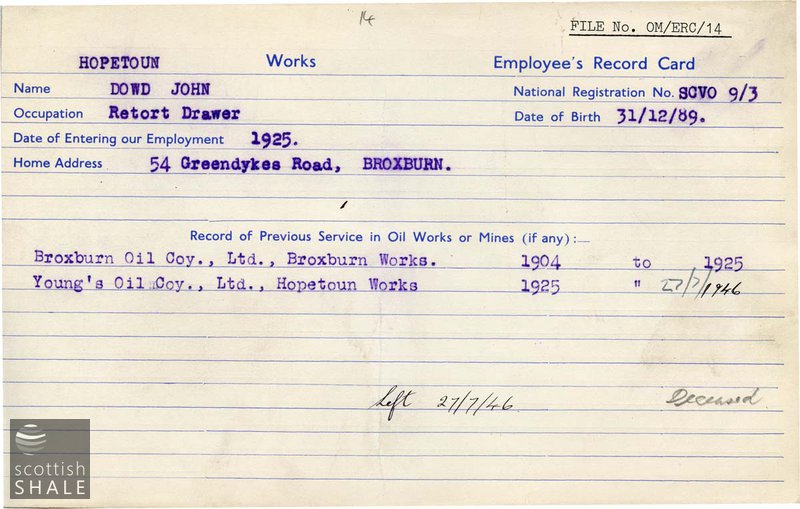 14
FILE No. OM/ERC/14
HOPETOUN Works Employee's Record Card
Name DOWD JOHN National Registration No. SCVO 9/3
Occupation Retort Drawer Date of Birth 31/12/89.
Date of Entering our Employment 1925.
Home Address 54 Greendykes Road, BROXBURN.
Record of Previous Service in Oil Works or Mines (if any) :—
Broxburn Oil Coy., Ltd., Broxburn Works. 1904 to 1925
Young's Oil Coy., Ltd., Hopetoun Works 1925 " 27/7/1946
Left 27/7/46. Deceased
scottish
SHALE